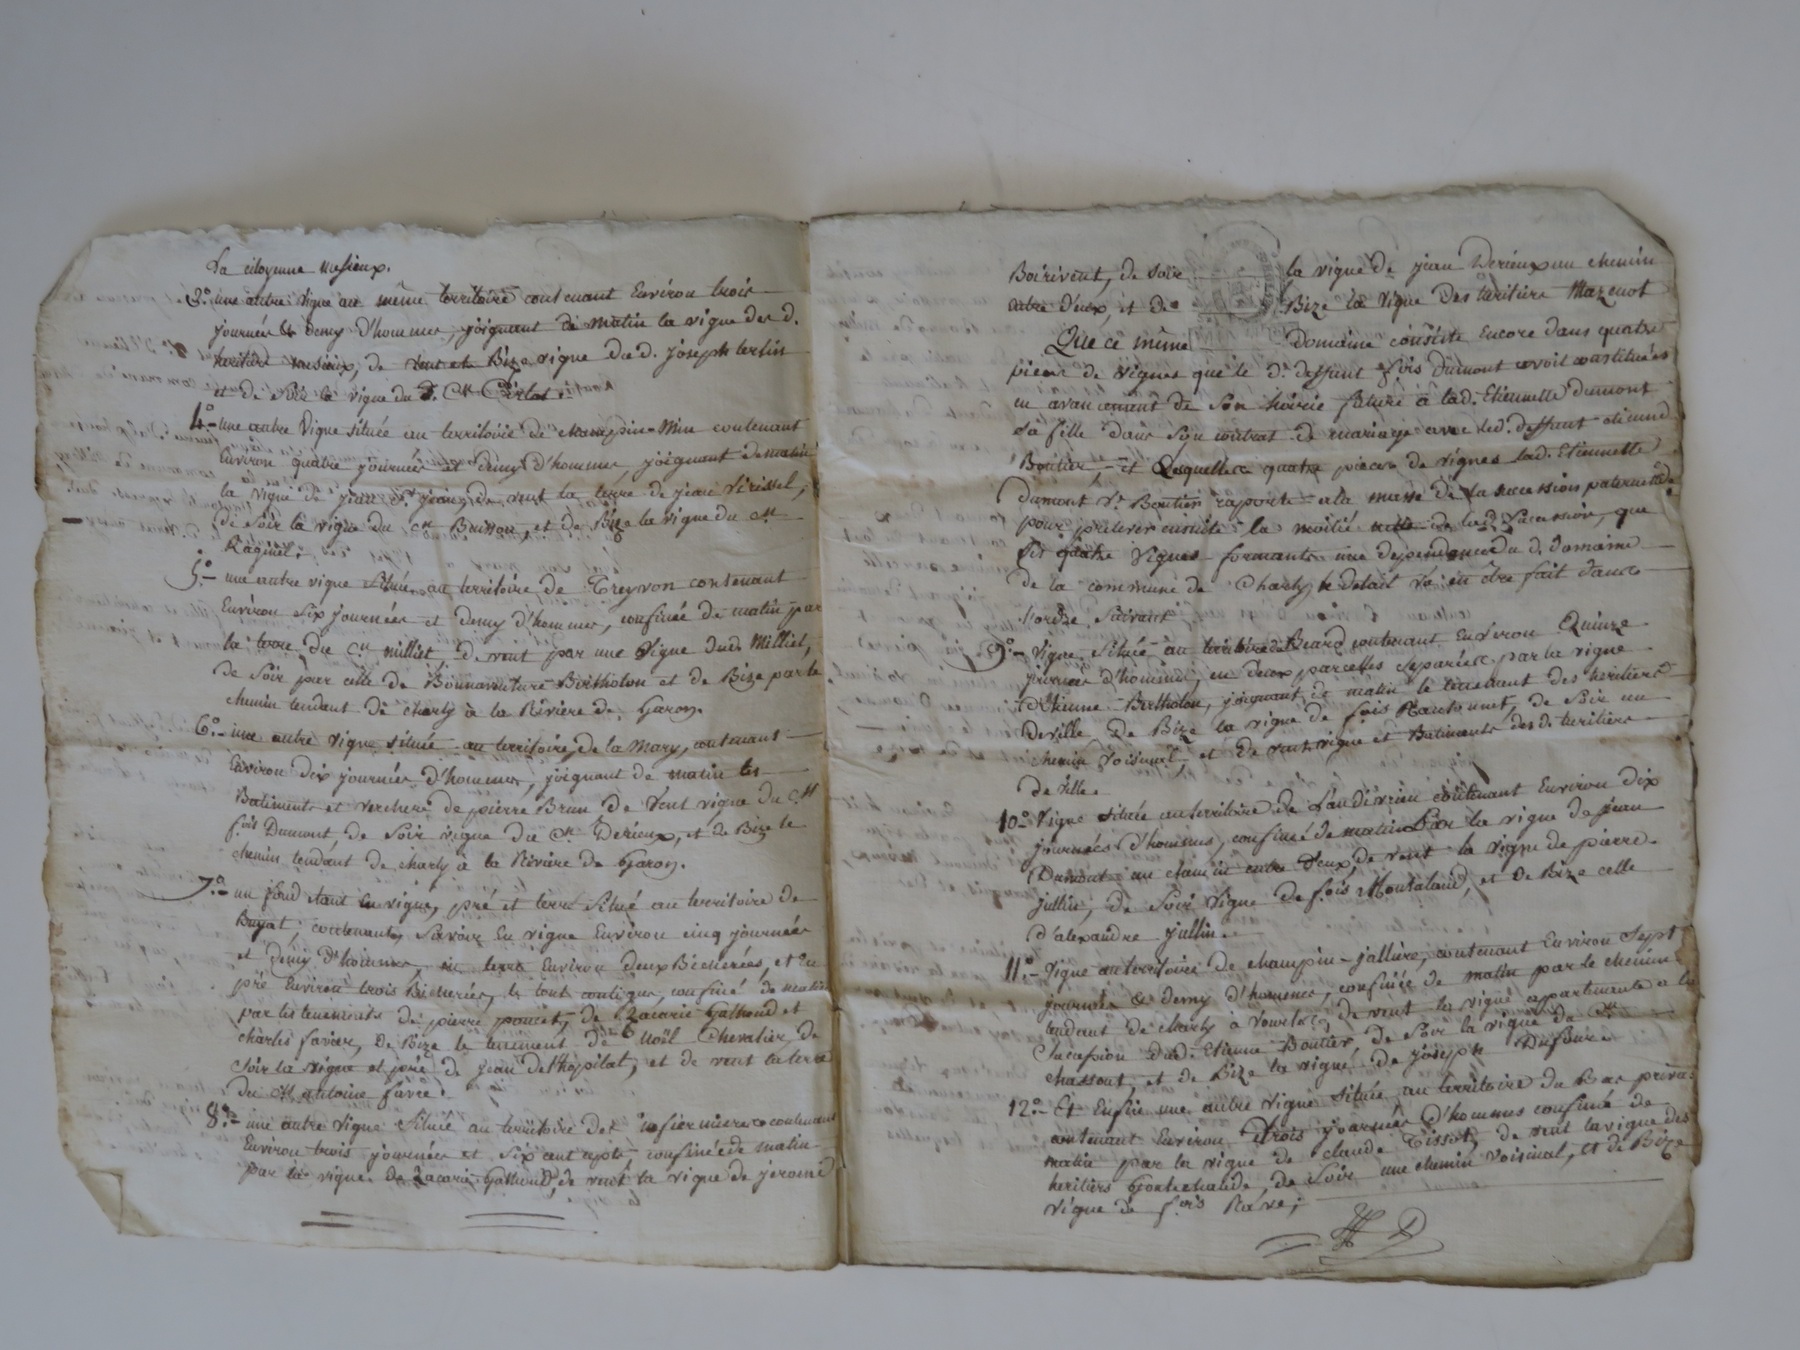 La citoyenne mesieux.
3.° une autre vigne au même territoire contenant Environ trois
journées & demy d'hommes, joignant de matin la vigne des d.
heritiers mesieux, de vent et Bize vigne du d. joseph terlin
et de soir la vigne du
4.° une autre Vigne située au territoire de contenant
Environ quatre journées et demy d'hommes, joignant de matin
la vigne de jean St jean, de vent la terre de jean Verissel,
de soir la vigne du Cn Buisson, et de Bize la vigne du Cn
Raginel.
5.° une autre vigne située au territoire de Treyvon contenant
Environ six journées et demy d'hommes, confinée de matin par
la terre du Cn milliet de vent par une Vigne dud. Milliet,
de soir par celle de Bonnaventure Bertholon et de Bize par le
chemin tendant de charly à la Rivière de Garon.
6.° une autre vigne située au territoire de la Mary, contenant
Environ dix journées d'hommes, joignant de matin les
Batiments et verchere de pierre Brun de Vent vigne du Cn
fois Dumont, de soir vigne du Cn Derieux, et de Bize le
chemin tendant de charly à la Rivière de Garon.
7.° un fond etant en vigne, pré et terre situé au territoire de
Buyat, contenant, savoir En vigne Environ cinq journées
et demy d'hommes, en terre Environ deux Bicherées, et en
pré Environ trois Bicherées, le tout contigu, confiné de matin
par les tenements de pierre poncet, de Zacarie Gathoud et
charles favier, de Bize le tenement de Noël Chevalier, de
soir la vigne et pré de jean delhopital, et de vent la terre
du Cn antoine favre.
8.° une autre vigne située au territoire des contenant
Environ trois journées et six confinée de matin
par la vigne de Zacarie Gathoud, de vent la vigne de jerome
Boirivent, de soir la vigne de jean Derieux un chemin
entre deux, et de Bize la vigne des heritiers Mazenot
Que ce même domaine consiste Encore dans quatre
pieces de vignes que le d. deffunt fois Dumont avoit constituées
en avancement de son hoirie future à lad. Etiennette Dumont
sa fille dans son contrat de mariage avec led. deffunt etienne
Boutier, et Lesquelles quatre pieces de vignes lad. Etiennette
Dumont Ve Boutier raporte a la masse de la succession paternelle
pour prelever ensuite la moitié de lad. succession, que
les quatre vignes formants une dependance du d. domaine
de la commune de Charly, le detail va en être fait dans
l'ordre suivant
9.° Vigne située au territoire de Beard contenant Environ Quinze
journées d'hommes, en deux parcelles separées par la vigne
d'Etienne Bertholon, joignant de matin le tenement des heritiers
Deville, de Bize la vigne de fois de soir un
chemin voisinal, et de vent vigne et Batiments des d. heritiers
Deville.
10.° Vigne située au territoire de Landivrieu contenant Environ dix
journées d'hommes, confinée de matin Par la vigne de jean
Dumont un chemin entre deux, de vent la vigne de pierre
jullin, de soir vigne de fois Montaland, et de Bize celle
d'alexandre jullin.
11.° Vigne au territoire de champin-jalliere, contenant Environ sept
journées & demy d'hommes, confinée de matin par le chemin
tendant de charly à Vourles, de vent la vigne appartenante a la
succession dud. Etienne Boutier, de soir la vigne du Cn
chassout, et de Bize la vigne de joseph Dufour.
12.° Et Enfin une autre vigne située au territoire du
contenant Environ trois journées d'hommes confinée de
matin par la vigne de claude Tissot, de vent la vigne des
heritiers Gontechande, de soir une chemin voisinal, et de Bize
vigne de fois Rave;